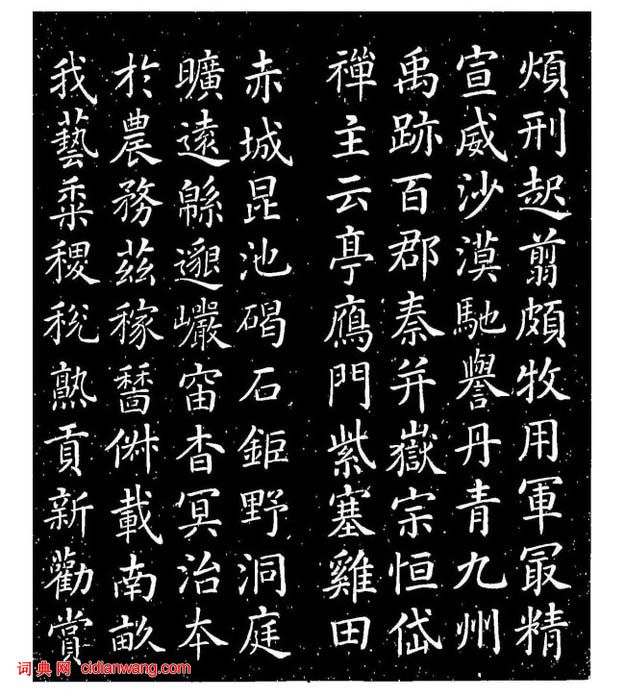 煩刑起翦頗牧用軍冣精
宣威沙漠馳譽丹青九州
禹跡百郡秦并嶽宗恒岱
禪主云亭鴈門紫塞雞田
赤城昆池碣石鉅野洞庭
曠遠緜邈巖宙杳冥治本
於農務茲稼穡俶載南畝
我藝黍稷稅熟貢新勸賞
词典网 cidianwang.com